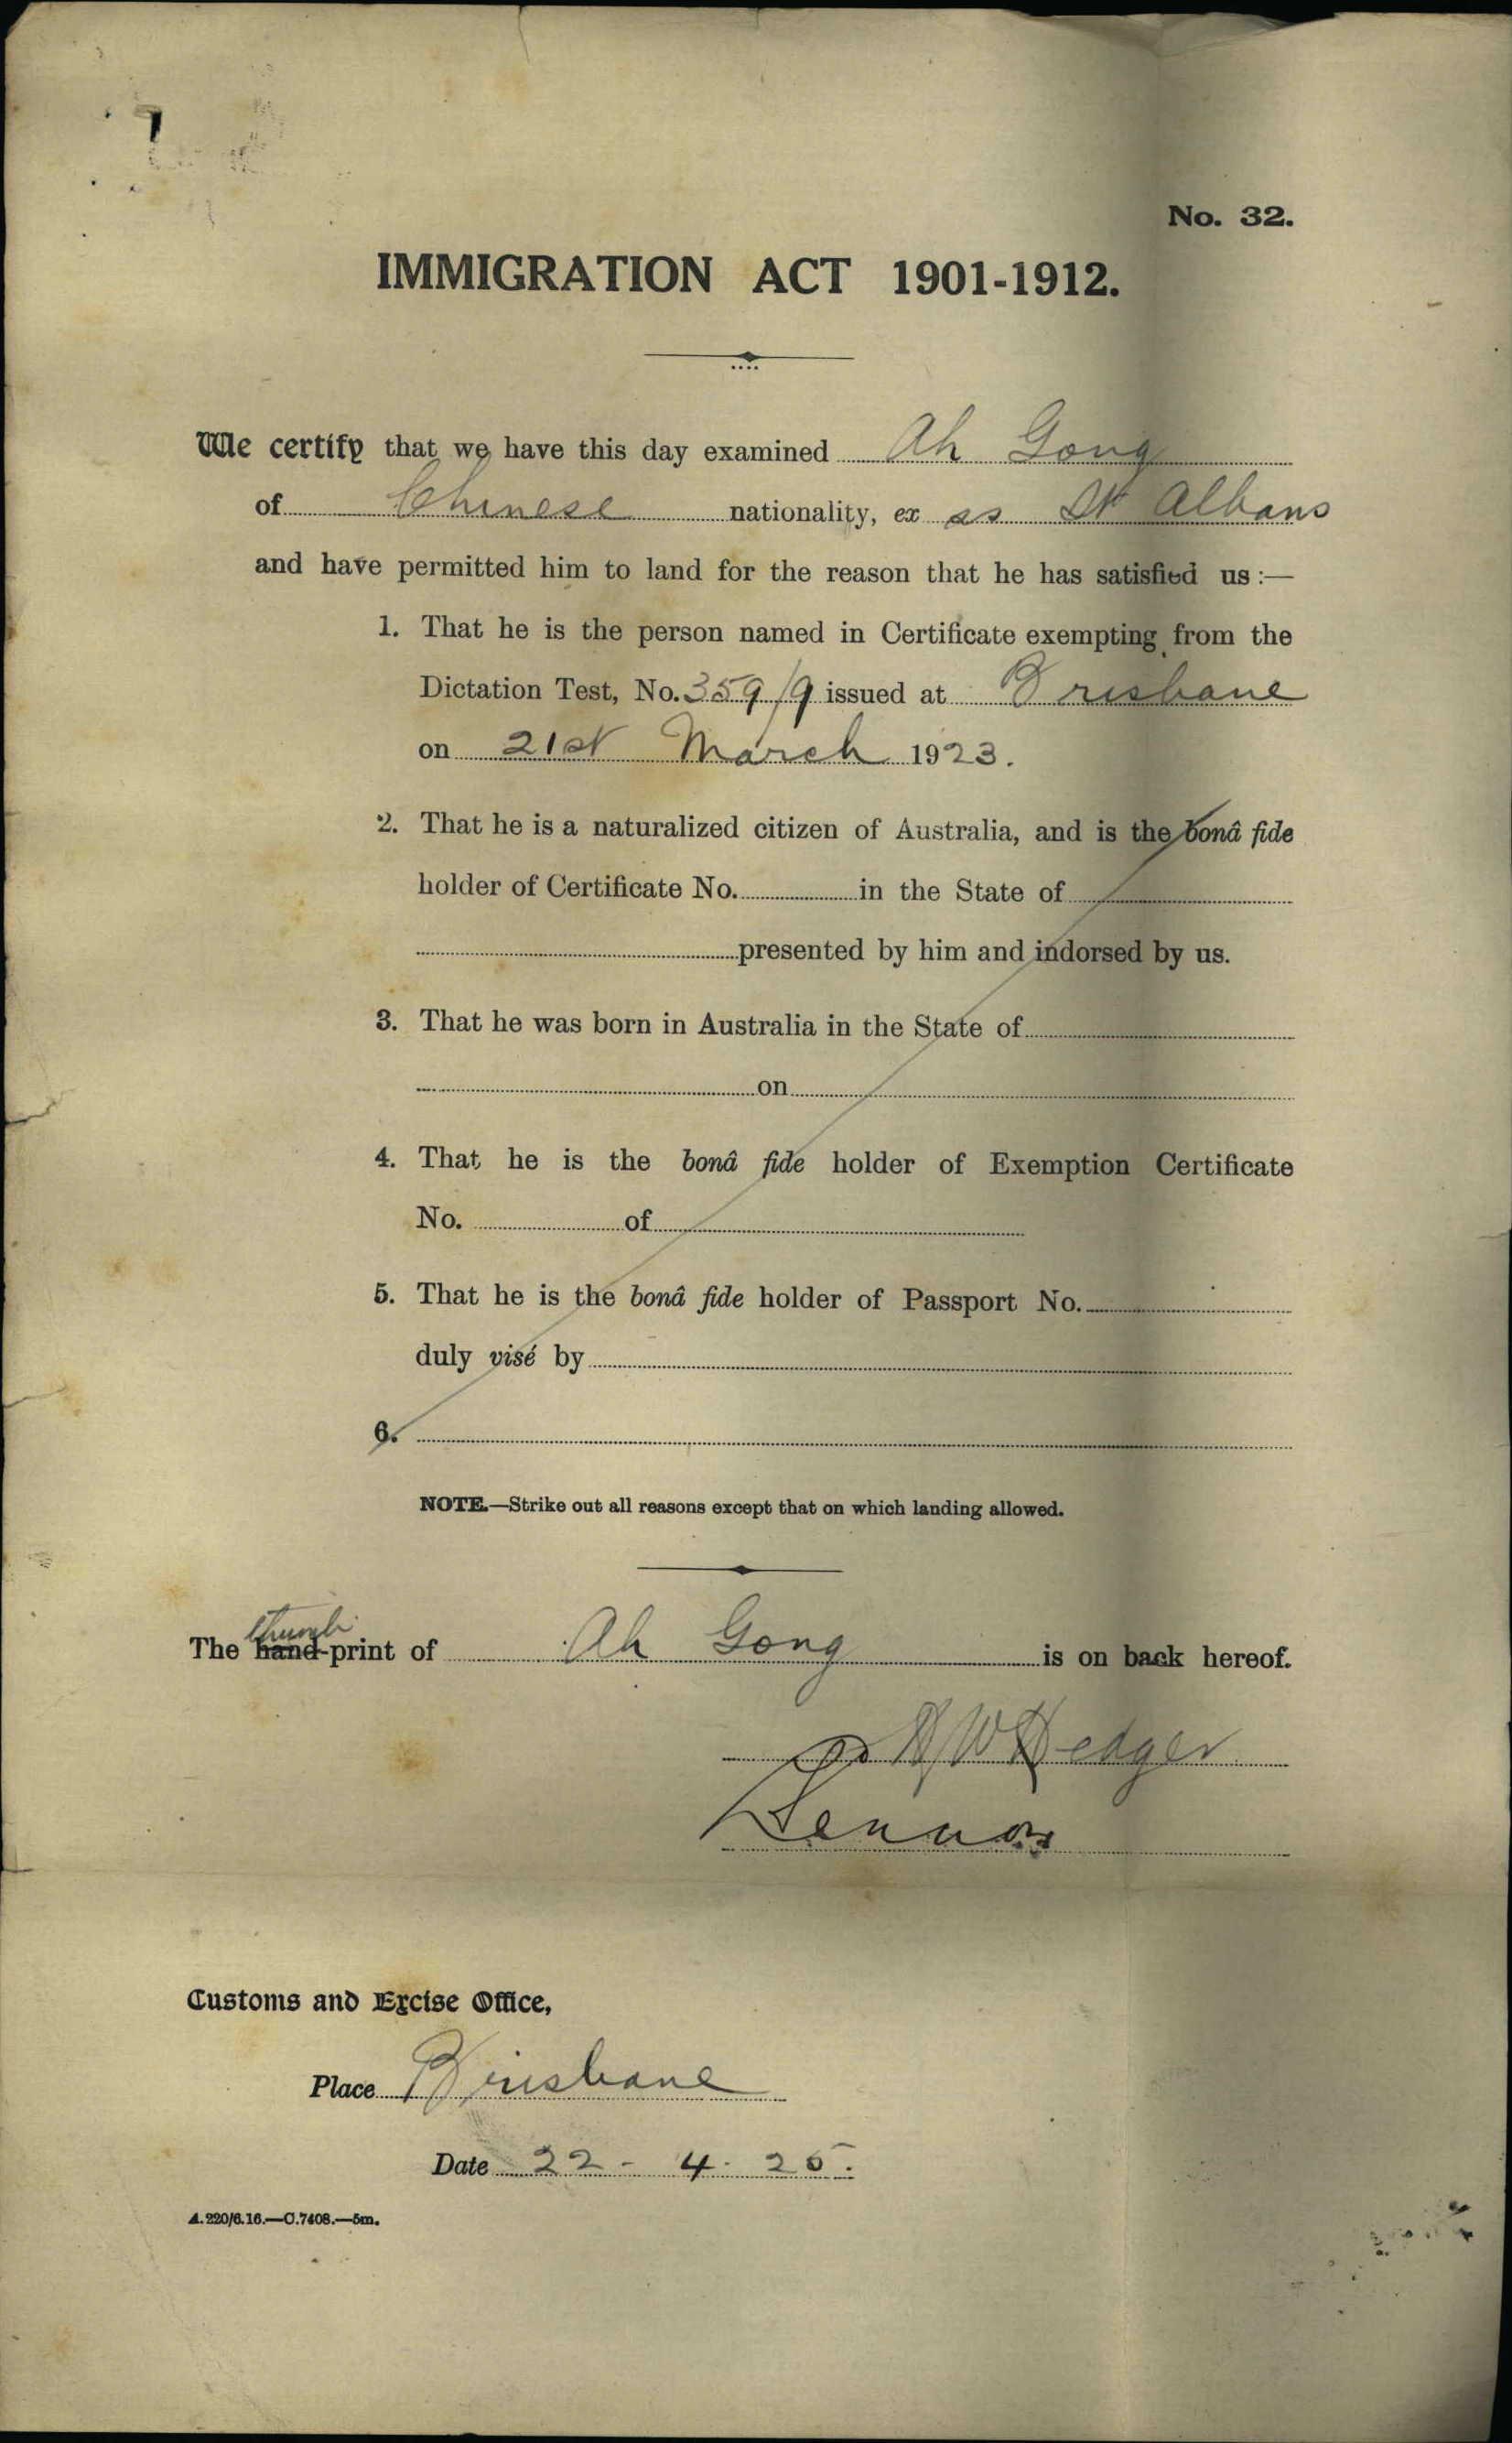 No. 32.
IMMIGRATION ACT 1901-1912.
We certify that we have this day examined Ah Gong
of Chinese nationality, ex ss St Albans
and have permitted him to land for the reason that he has satisfied us :—
1. That he is the person named in Certificate exempting from the
Dictation Test, No. 359/9 issued at Brisbane
on 21st March 1923.
2. That he is a naturalized citizen of Australia, and is the bonâ fide
holder of Certificate No. in the State of
presented by him and indorsed by us.
3. That he was born in Australia in the State of
on
4. That he is the bonâ fide holder of Exemption Certificate
No. of
5. That he is the bonâ fide holder of Passport No.
duly visé by
6.
NOTE.—Strike out all reasons except that on which landing allowed.
thumb
The hand-print of Ah Gong is on back hereof.
Customs and Excise Office,
Place Brisbane
Date 22 - 4 - 25.
A.220/6.16.—C.7408.—5m.